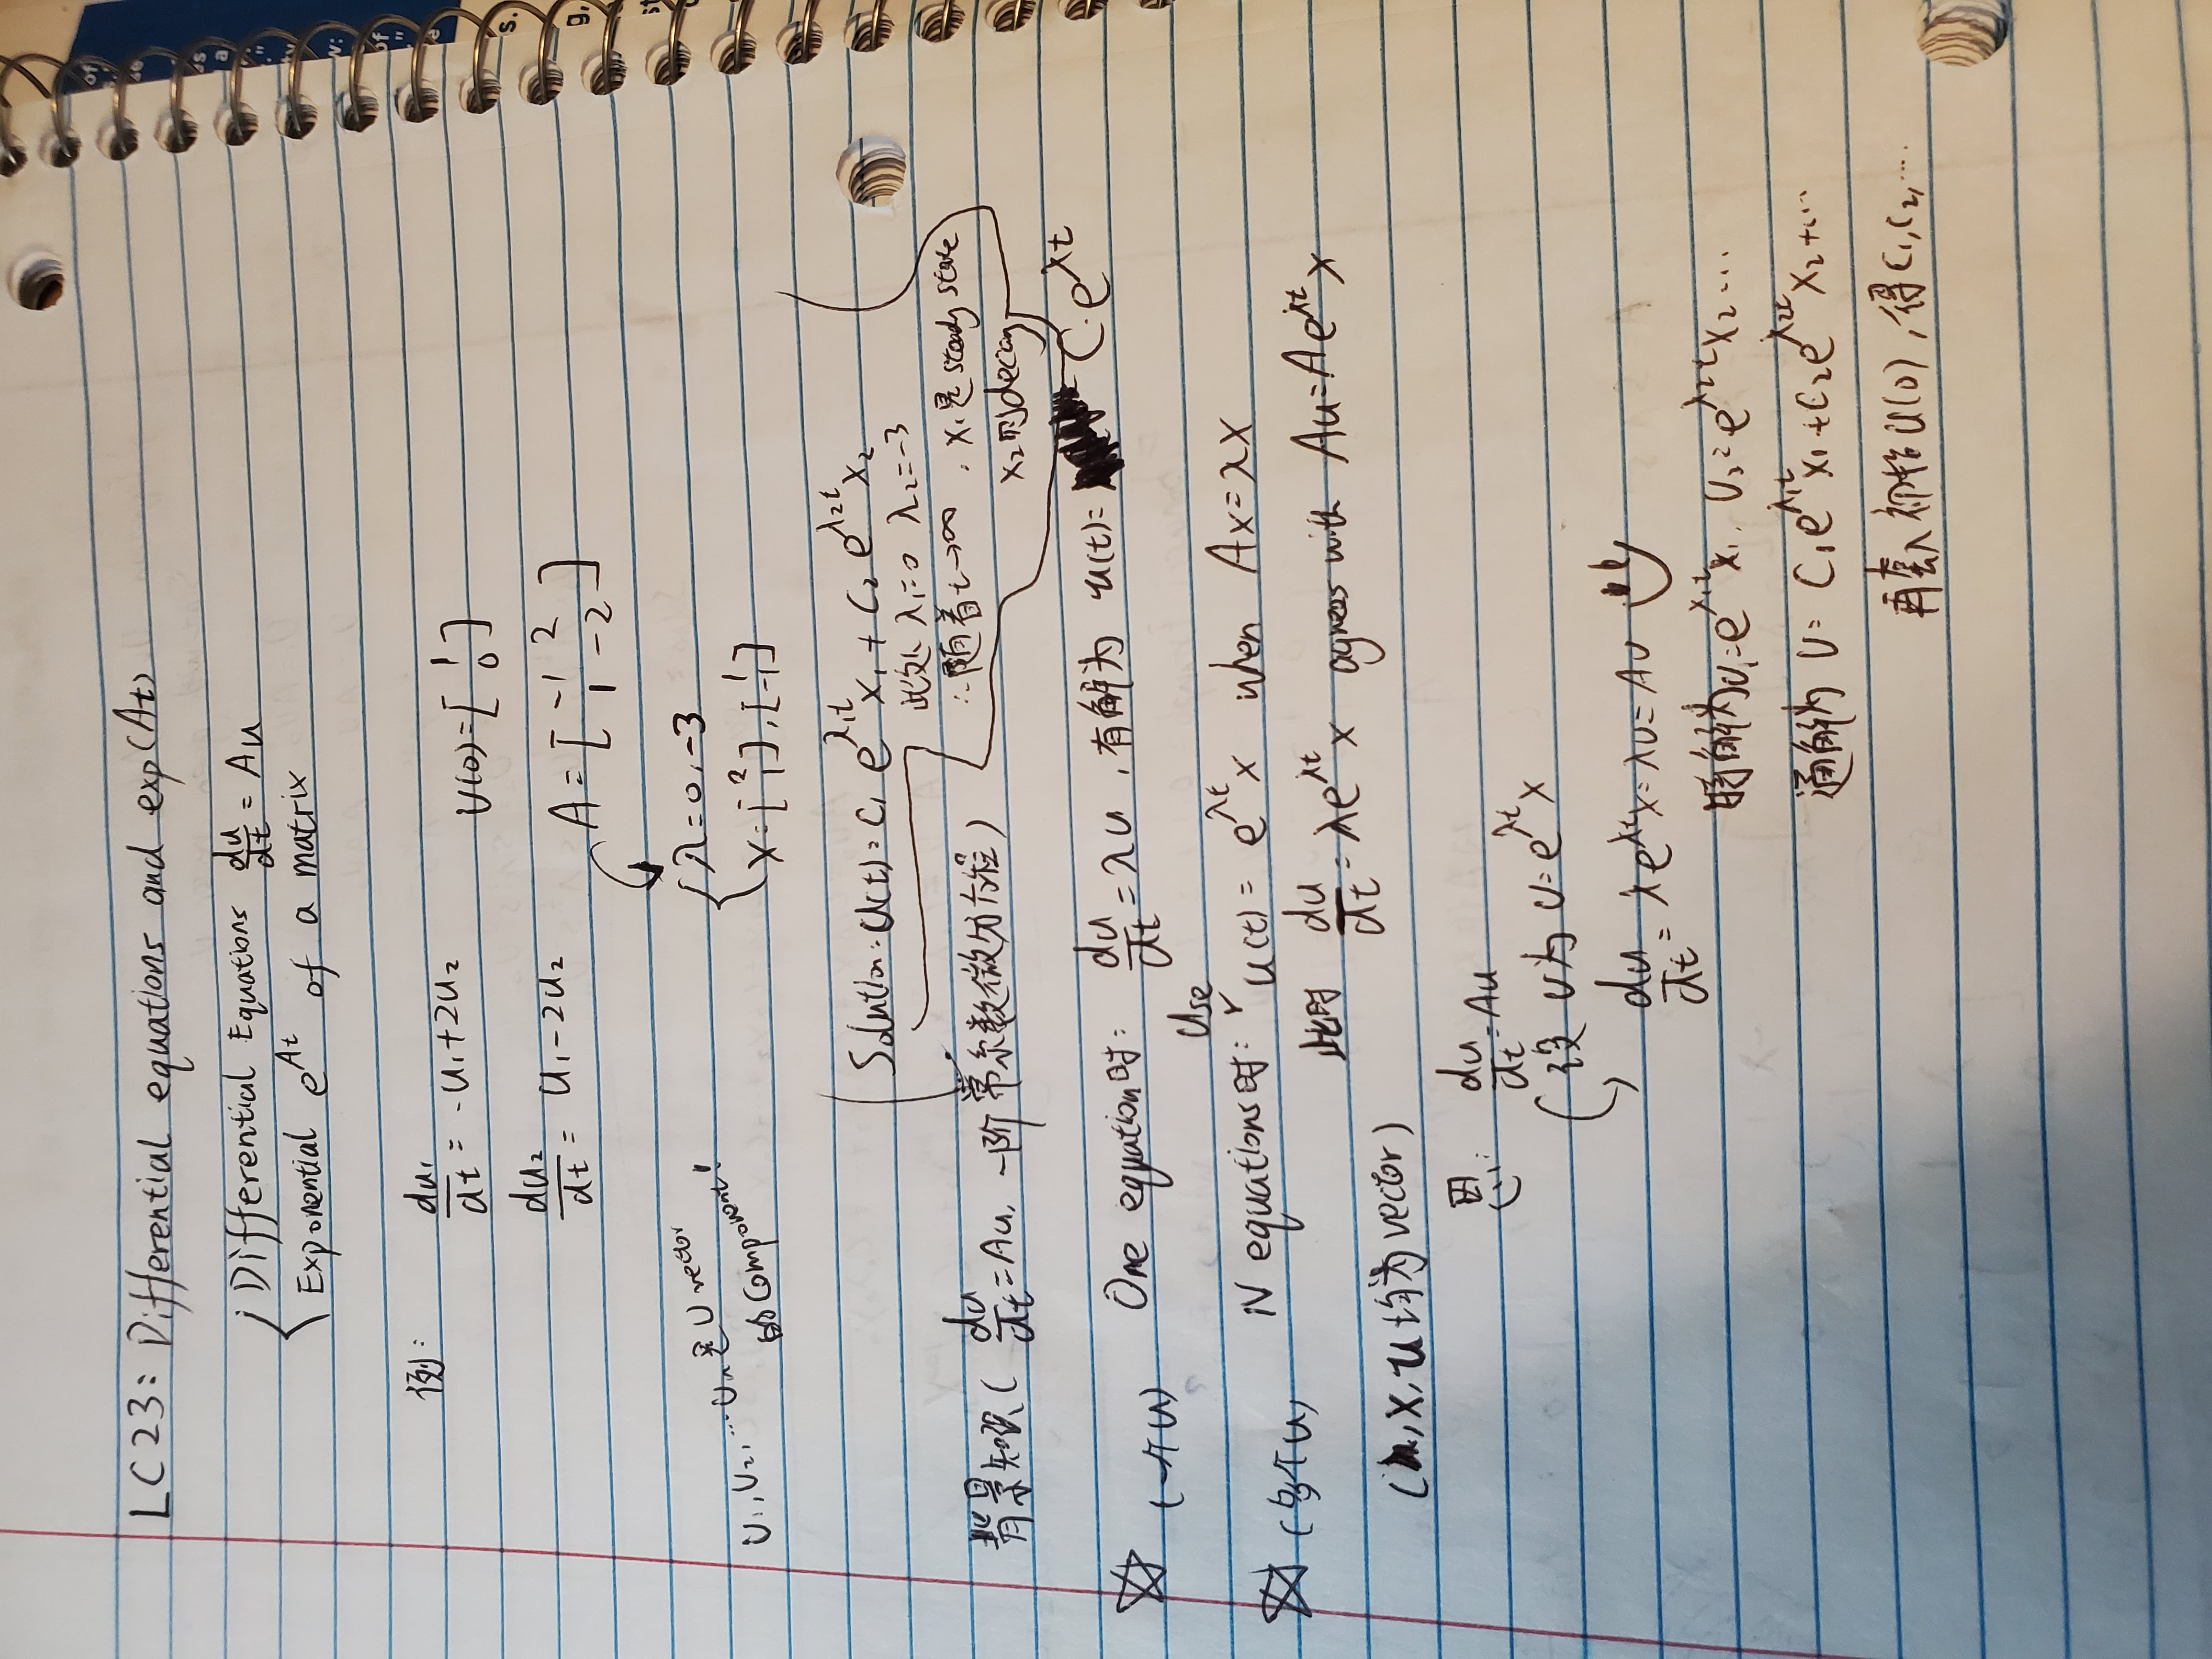 LC23: Differential equations and exp(At)
Differential Equations du/dt = Au
Exponential e^{At} of a matrix
例:
du₁/dt = -u₁+2u₂
U(0)=[1 0]
du₂/dt = u₁-2u₂
A = [-1 2
1 -2]
λ=0,-3
X=[2 1],[1 -1]
U₁,U₂,…Uₙ是U vector
的Component!
Solution: U(t)=C₁ e^{λ₁t} X₁ + C₂ e^{λ₂t} X₂
此处 λ₁=0 λ₂=-3
∴随着t→∞, X₁是steady state
X₂则decay
背景知识( du/dt=Au, 一阶常系数微分方程)
(一个U) One equation时: du/dt=λu, 有解为 u(t)= C·e^{λt}
Use
(多个U) N equations时: u(t)= e^{λt} X when AX=λX
此时 du/dt=λe^{λt} X agrees with Au=Ae^{λt} X
(X,u均为vector)
因: du/dt=Au
设 U为 U=e^{λt} X
du/dt=λe^{λt}X=λU=AU
特解为U₁=e^{λ₁t}X₁, U₂=e^{λ₂t}X₂…
通解为 U= C₁e^{λ₁t}X₁+C₂e^{λ₂t}X₂+…
再套入初始U(0),得C₁,C₂,…